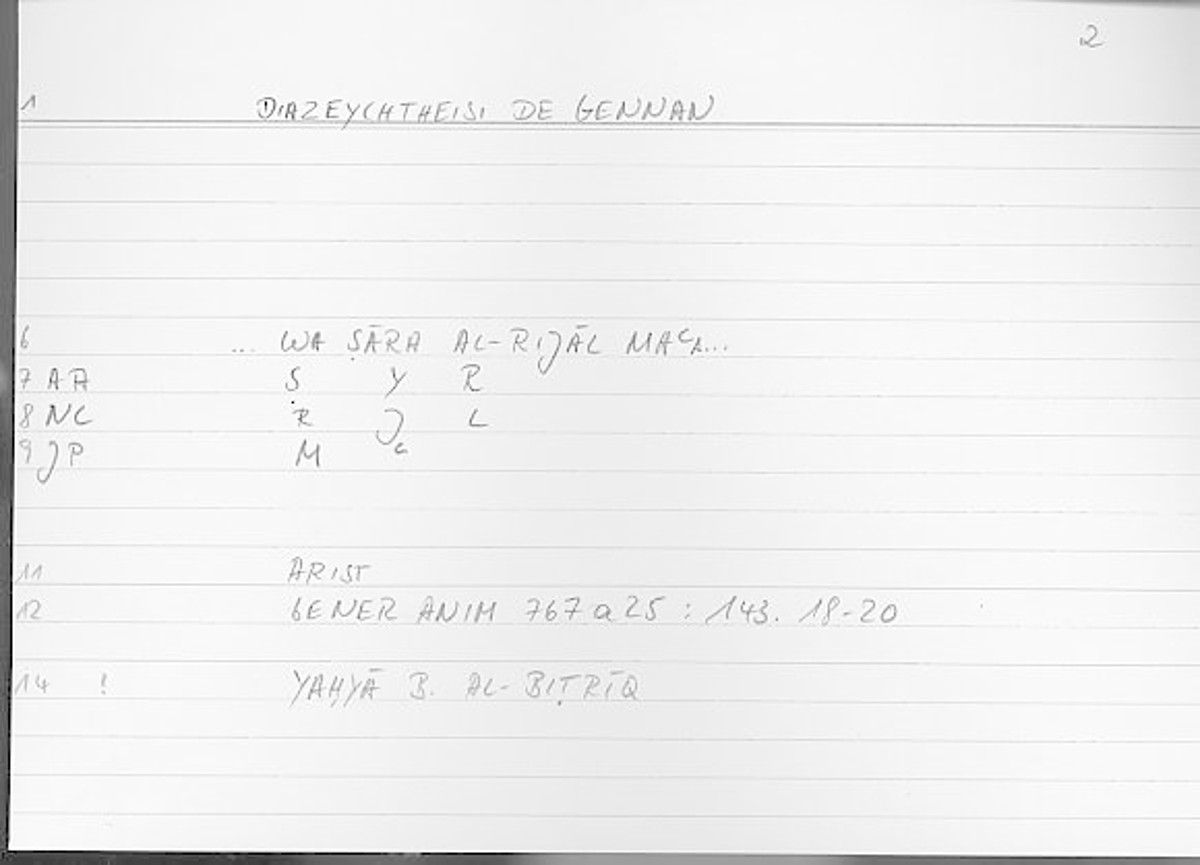 2
1 DIAZEYCHTHEISI DE GENNAN
6 ... WA ṢĀRA AL-RIJĀL MAʿA...
7 AA Ṣ Y R
8 NC R J L
9 JP M ʿ
11 ARIST
12 GENER ANIM 767 a 25 : 143. 18-20
14 ! YAḤYĀ B. AL-BIṬRĪQ